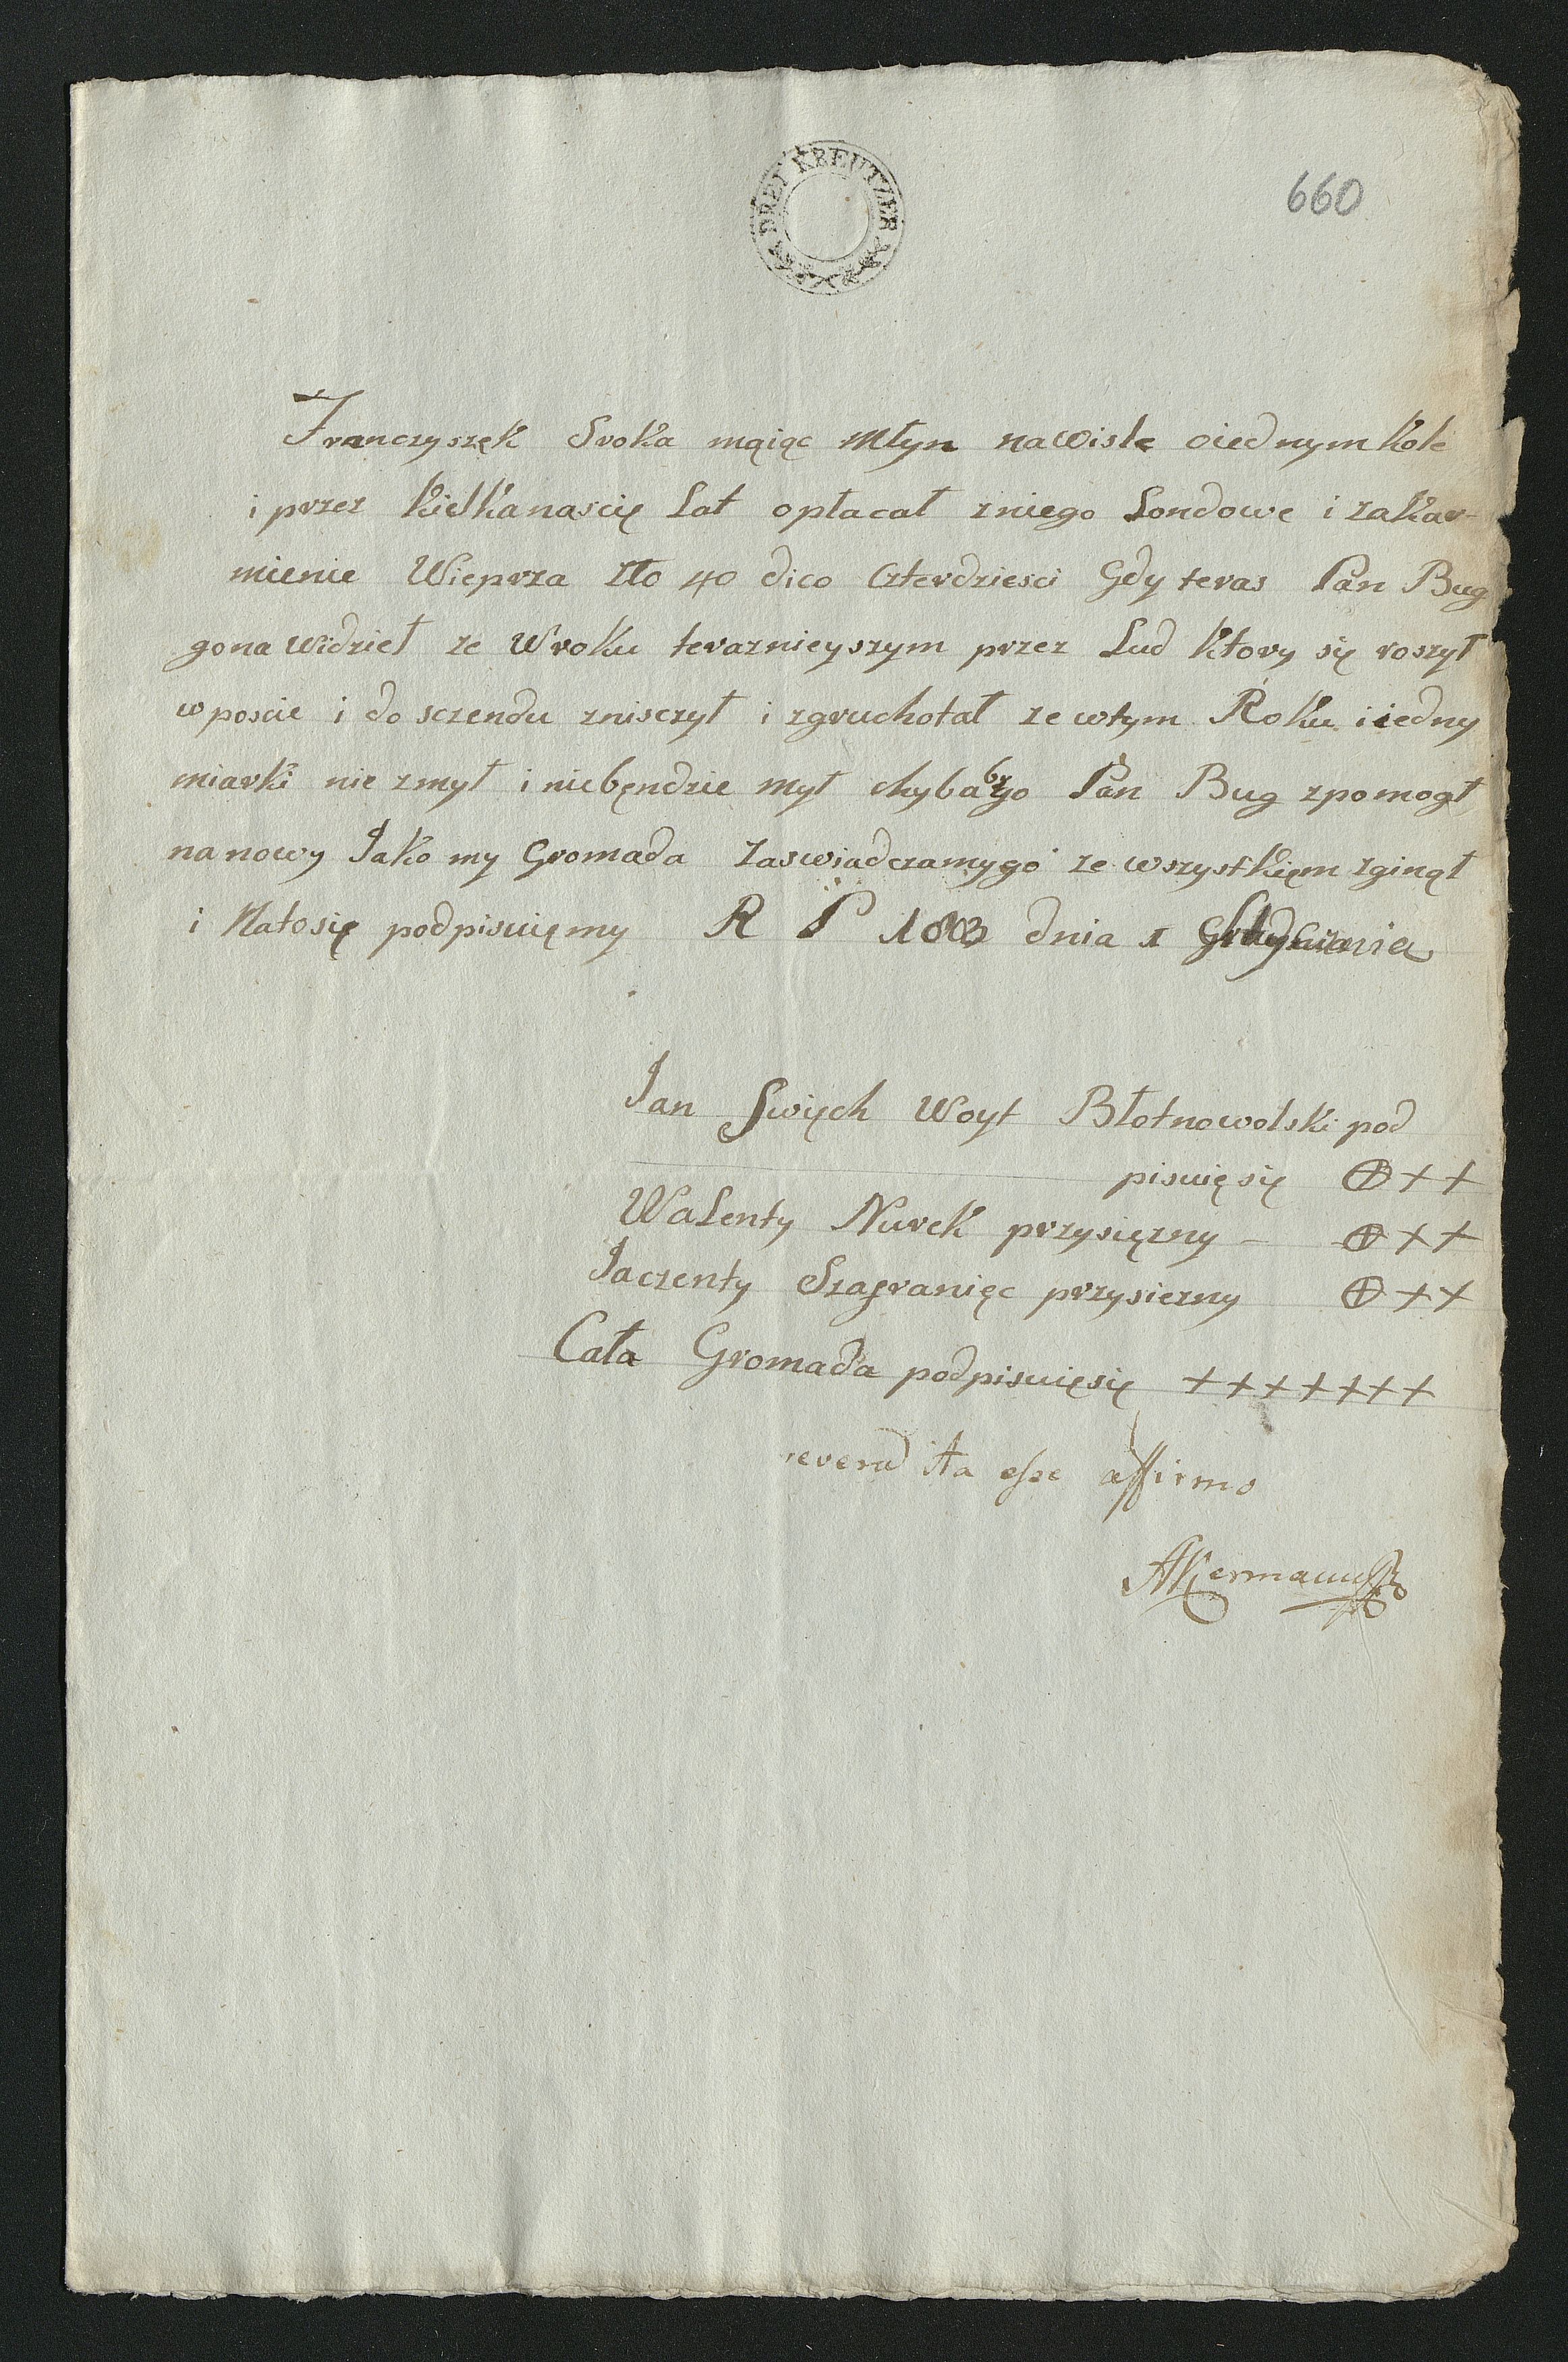 DREY KREUTZER
660
Franczyszęk Sroka mąiąc Młyn nawisle oiednym kole
i przez kielkanascię Lat opłacał zniego Londowe i zakar-
mienie Wieprza Zło 40 dico Czterdziesci Gdy teras Pan Bug
gona widzieł ze Wroku teraznieyszym przez Lud ktory się roszył
w poscie i do sczendu znisczył i zgruchotał ze wtym Roku i iedny
miarki nie zmył i niebęndzie mył chyba by go Pan Bug zpomogł
na nowy Jako my Gromada Zaswiadczamygo ze wszystkięm zginął
i Natosię podpisuięmy R P 1803 dnia 1
Jan Swięch Woyt Błotnowolski pod
pisuięsię ⊕ + +
Walenty Nurek przysięzny – ⊕ + +
Jaczenty Szafranięc przysiezny ⊕ + +
Cała Gromada podpisuięsię + + + + + + +
revera ita esse affirmo
Akermann